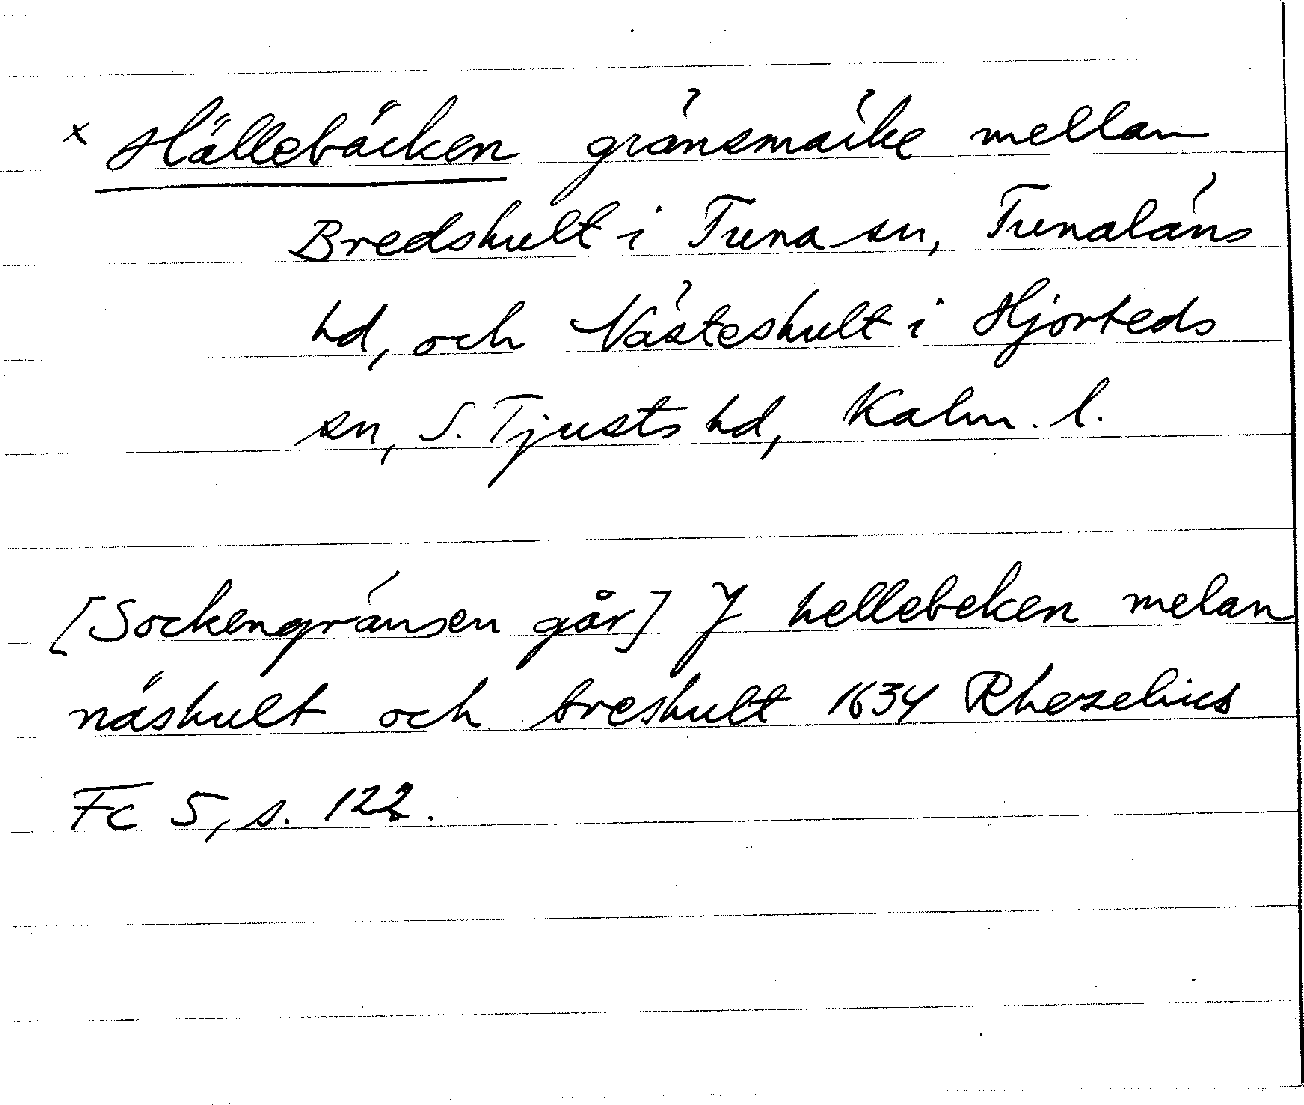 x Hällebäcken gränsmärke mellan
Bredshult i Tuna sn, Tunaläns
hd, och Näteshult i Hjorteds
sn, S. Tjusts hd, Kalm. l.
[Sockengränsen går] J hellebeken melan
näshult och breshult 1634 Rhezelius
Fc 5, s. 122.